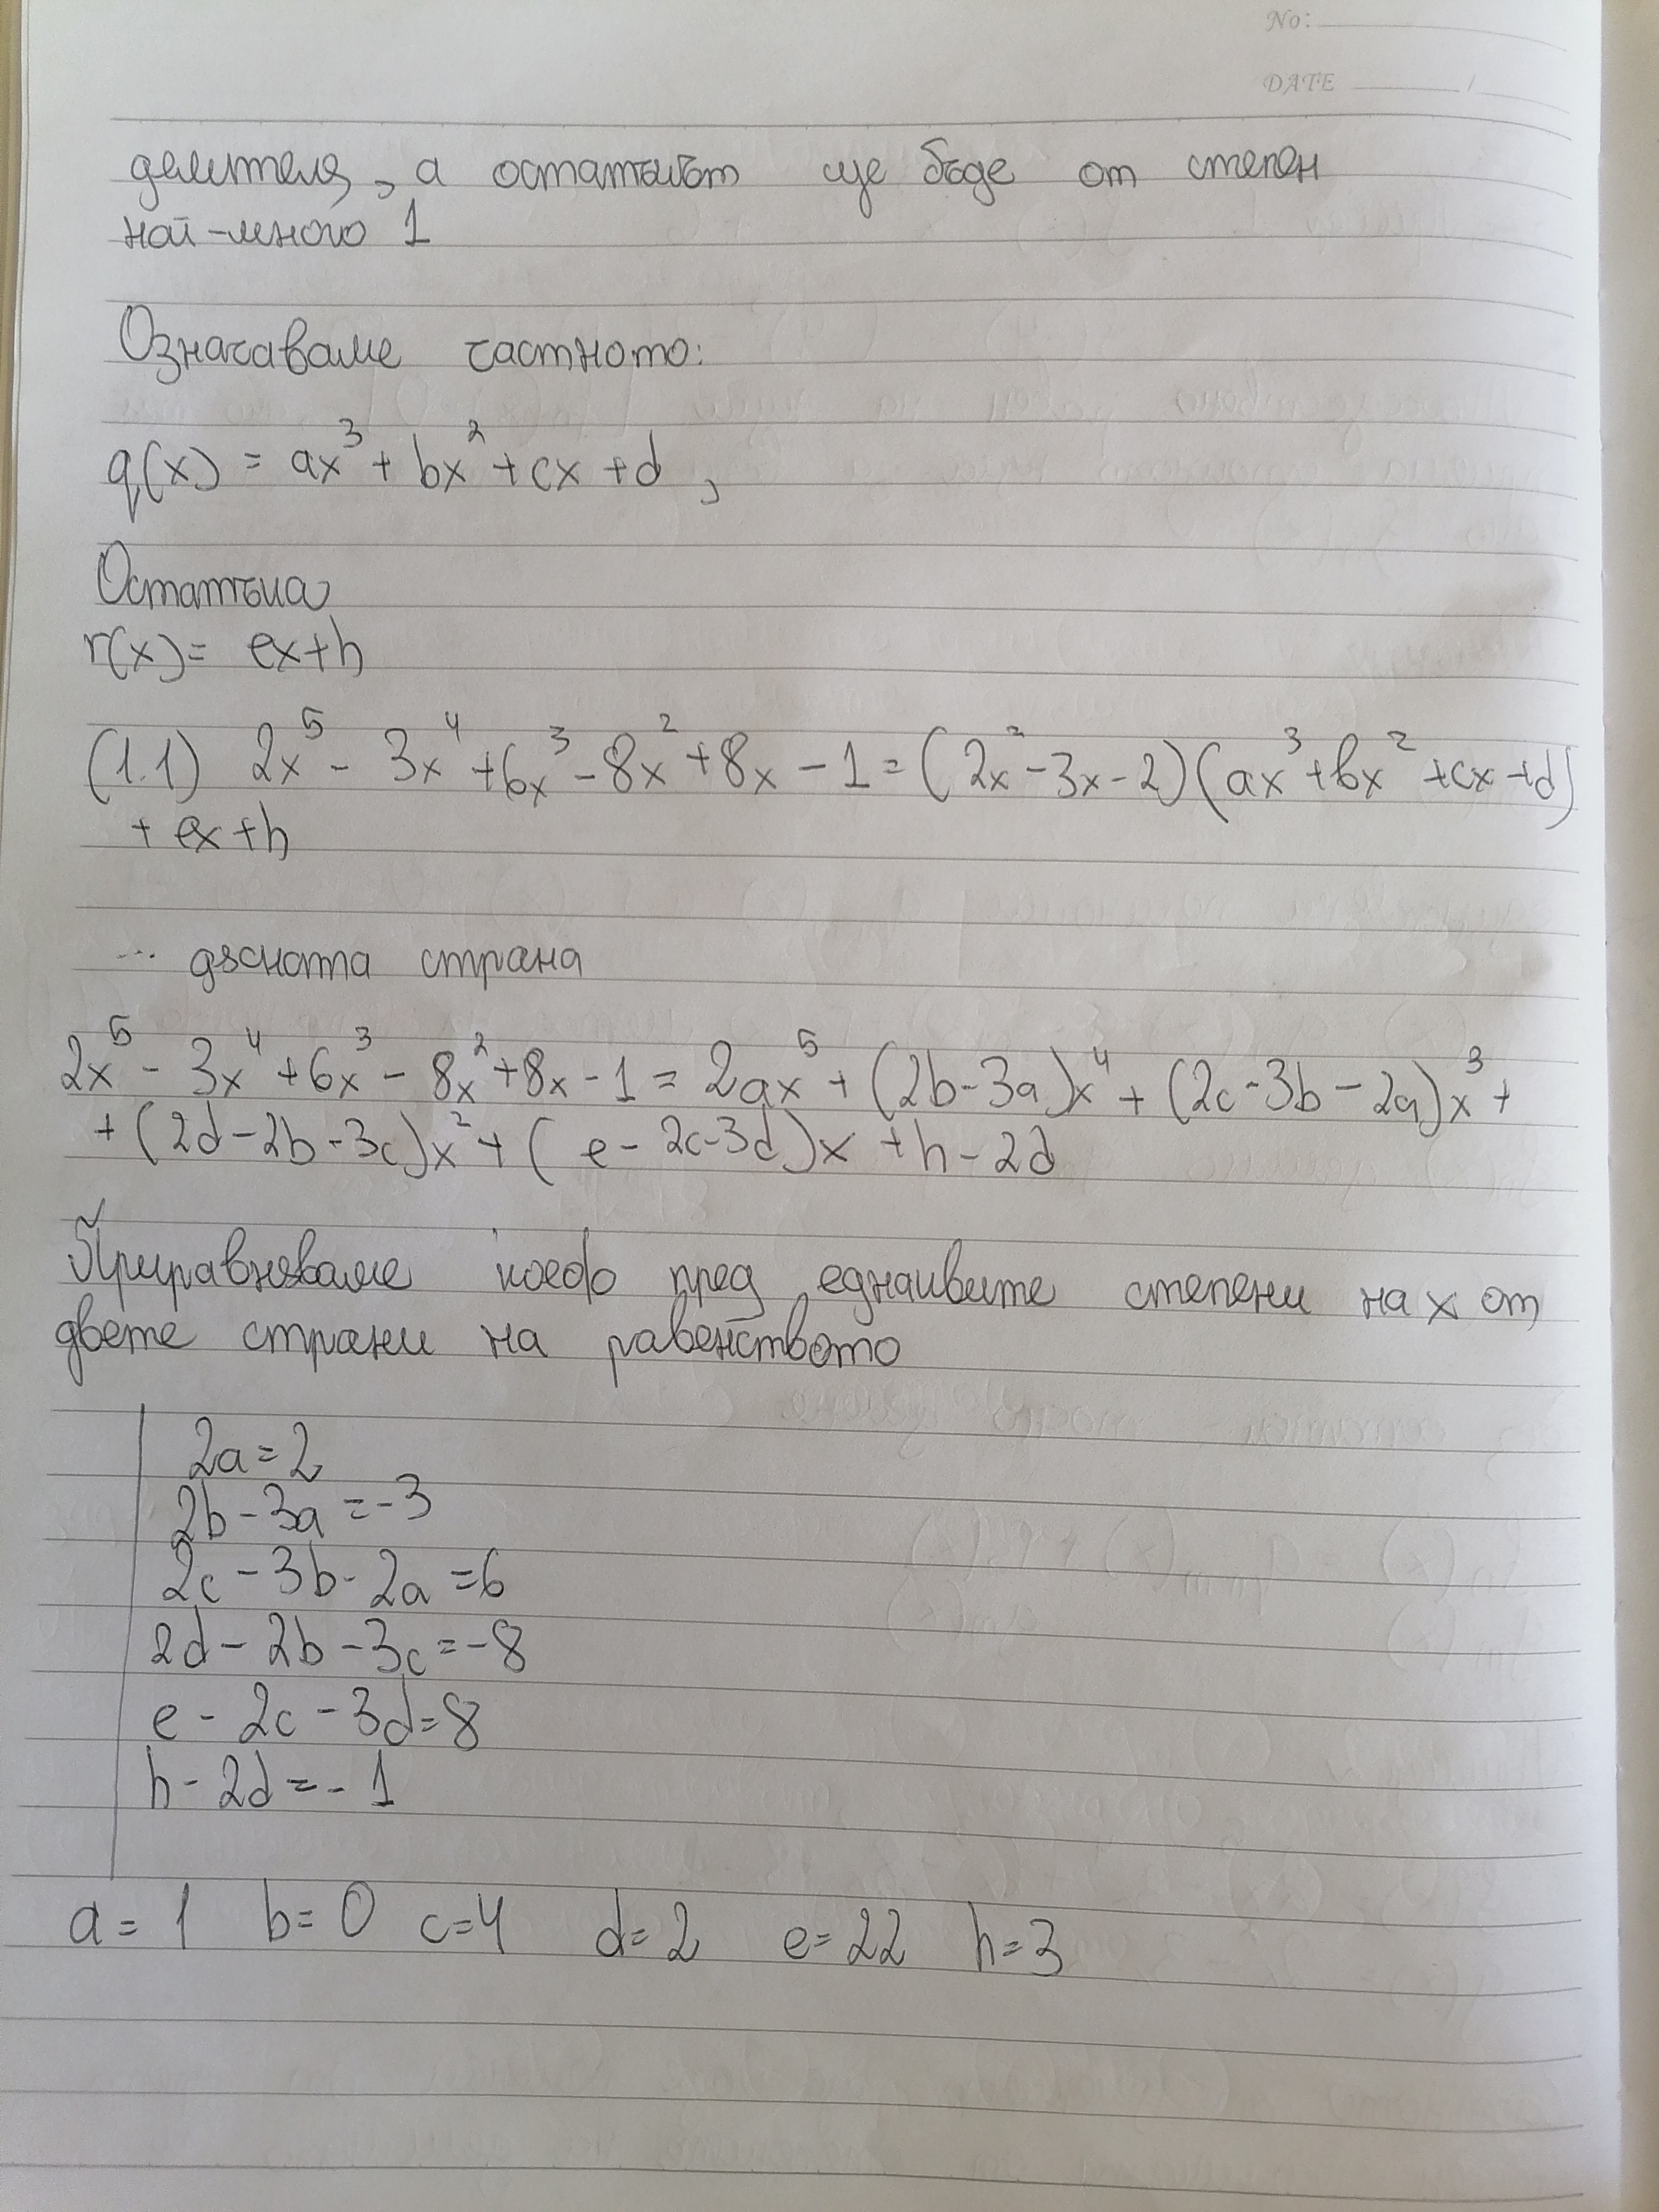 No:
DATE /
делителя, а остатъкът ще бъде от степен
най-много 1
Означаваме частното:
q(x) = ax³ + bx² + cx + d ,
Остатъка
r(x) = ex+h
(1.1) 2x⁵ - 3x⁴ + 6x³ - 8x² + 8x - 1 = (2x² - 3x - 2)(ax³ + bx² + cx + d)
+ ex + h
... дясната страна
2x⁵ - 3x⁴ + 6x³ - 8x² + 8x - 1 = 2ax⁵ + (2b-3a)x⁴ + (2c-3b-2a)x³ +
+ (2d-2b-3c)x² + (e-2c-3d)x + h - 2d
Приравняваме коеф пред еднаквите степени на x от
двете страни на равенството
2a = 2
2b - 3a = -3
2c - 3b - 2a = 6
2d - 2b - 3c = -8
e - 2c - 3d = 8
h - 2d = - 1
a = 1 b = 0 c = 4 d = 2 e = 22 h = 3